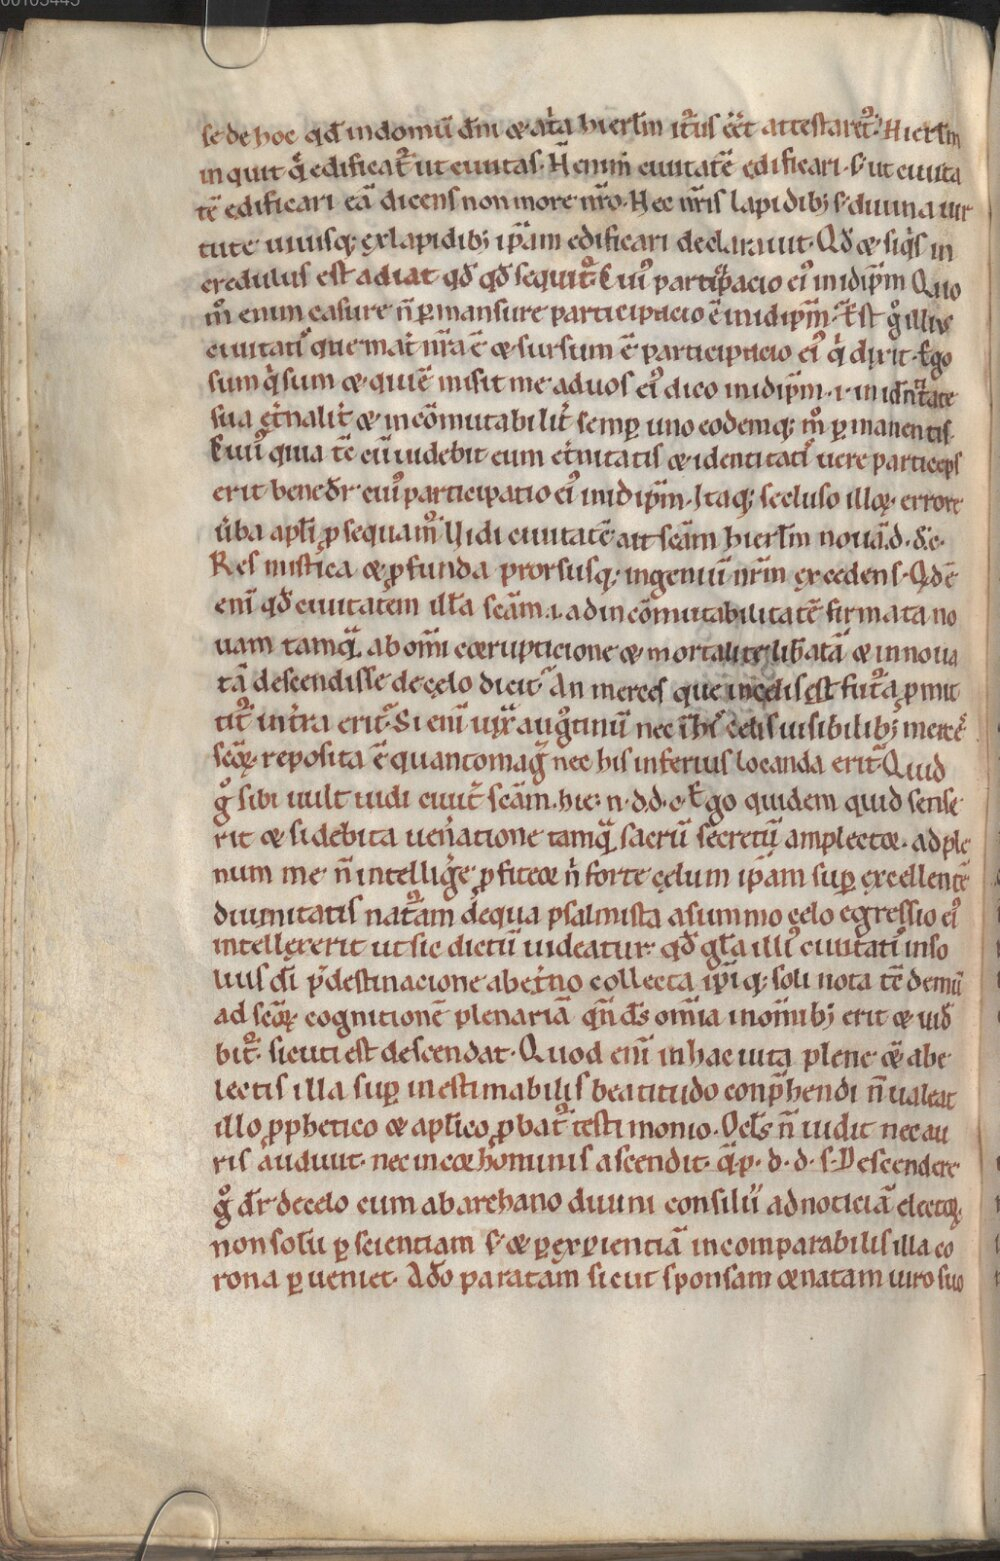 00105445
se de hoc qđ in domū dn̄i ⁊ at'a hierlm̄ it'us cēt attestaret'. Hierlm̄
inquit q̄ edificat' ut ciuitas. N̄ enim ciuitatē edificari. s; ut ciuita
tē edificari eā dicens non more nr̄o. Nec nr̄is lapidib; s; diuina uir
tute uiuisq; ex lapidib; ip̄am edificari declarauit. Qđ ⁊ siq's in
credulus est adiat qđ qđ sequit'. Cui' participacio ei' in idip̄m Quo
m̊ enim casure n̄ ꝑmansure participacio ē in idip̄m. Est g̊ illius
ciuitati' que mat' nr̄a ē ⁊ sursum ē participacio ei' q̄ dixit. Ego
sum q' sum ⁊ qui ē misit me ad uos ei' dico in idip̄m .i. in idn̄titate
sua et'nalit' ⁊ incōmutabilit' semꝑ uno eodemq; m̊ ꝑmanentis.
Cui' quia tē cū uidebit eum et'nitatis ⁊ identitati' uere particeps
erit bene dr̄ cui' participatio ei' in idip̄m. Itaq; secluso illoꝝ errore
u'ba apl̄i ꝓsequam'. Uidi ciuitatē ait sc̄am hierlm̄ nouā .d. d.c.
Res mistica ⁊ ꝓfunda prorsusq; ingeniū nr̄m excedens. Qđ ē
eni' qđ ciuitatem ill̄a sc̄am .i. ad incōmutabilitatē firmata no
uam tamq̄ ab om̄i corrupticione ⁊ mortalite lib'atā ⁊ innoua
tā descendisse de celo dicit? An merces que in celis est fut'a ꝓmit
tit' in t'ra erit? Si eni' iuxta augstinū nec in his celis uisibilib; merces
sc̄oꝝ reposita ē quantomag' nec his inferius locanda erit? Quid
g̊ sibi uult uidi ciuit' sc̄am. hie: n. d. d. c. Ego quidem quid sense
rit ⁊ si debita uen'atione tamq̄ sacrū secretū amplector. ad ple
num me n̄ intellig'e ꝓfiteor n' forte celum ip̄am suꝑ excellentē
diuinitatis nat'am de qua psalmista a summo celo egressio ei'
intellexerit ut sic dictū uideatur. qđ gl̄a illi' ciuitati' in so
lius dī p̄destinacione ab et'no collecta ip̄iq; soli nota tē demū
ad sc̄oꝝ cognitionē plenariā qn̄ ds̄ om̄ia in om̄ib; erit ⁊ uid'
bit'. sicuti est descendat. Quod eni' in hac uita plene ⁊ ab e
lectis illa suꝑ inestimabilis beatitudo conp̄hendi n̄ ualeat
illo ꝓphetico ⁊ apl̄ico ꝓbat' testimonio. Ocl̄s n̄ uidit nec au
ris audiuit. nec in cor hominis ascendit. q̄ p. d. d. s. Descendere
g̊ dr̄ de celo cum ab archano diuini consilii' ad noticiā electoꝝ
non solū ꝑ scientiam s; ⁊ ꝑ exꝑientiā incomparabilis illa co
rona ꝑueniet. Ađo paratam sicut sponsam ornatam uiro suo